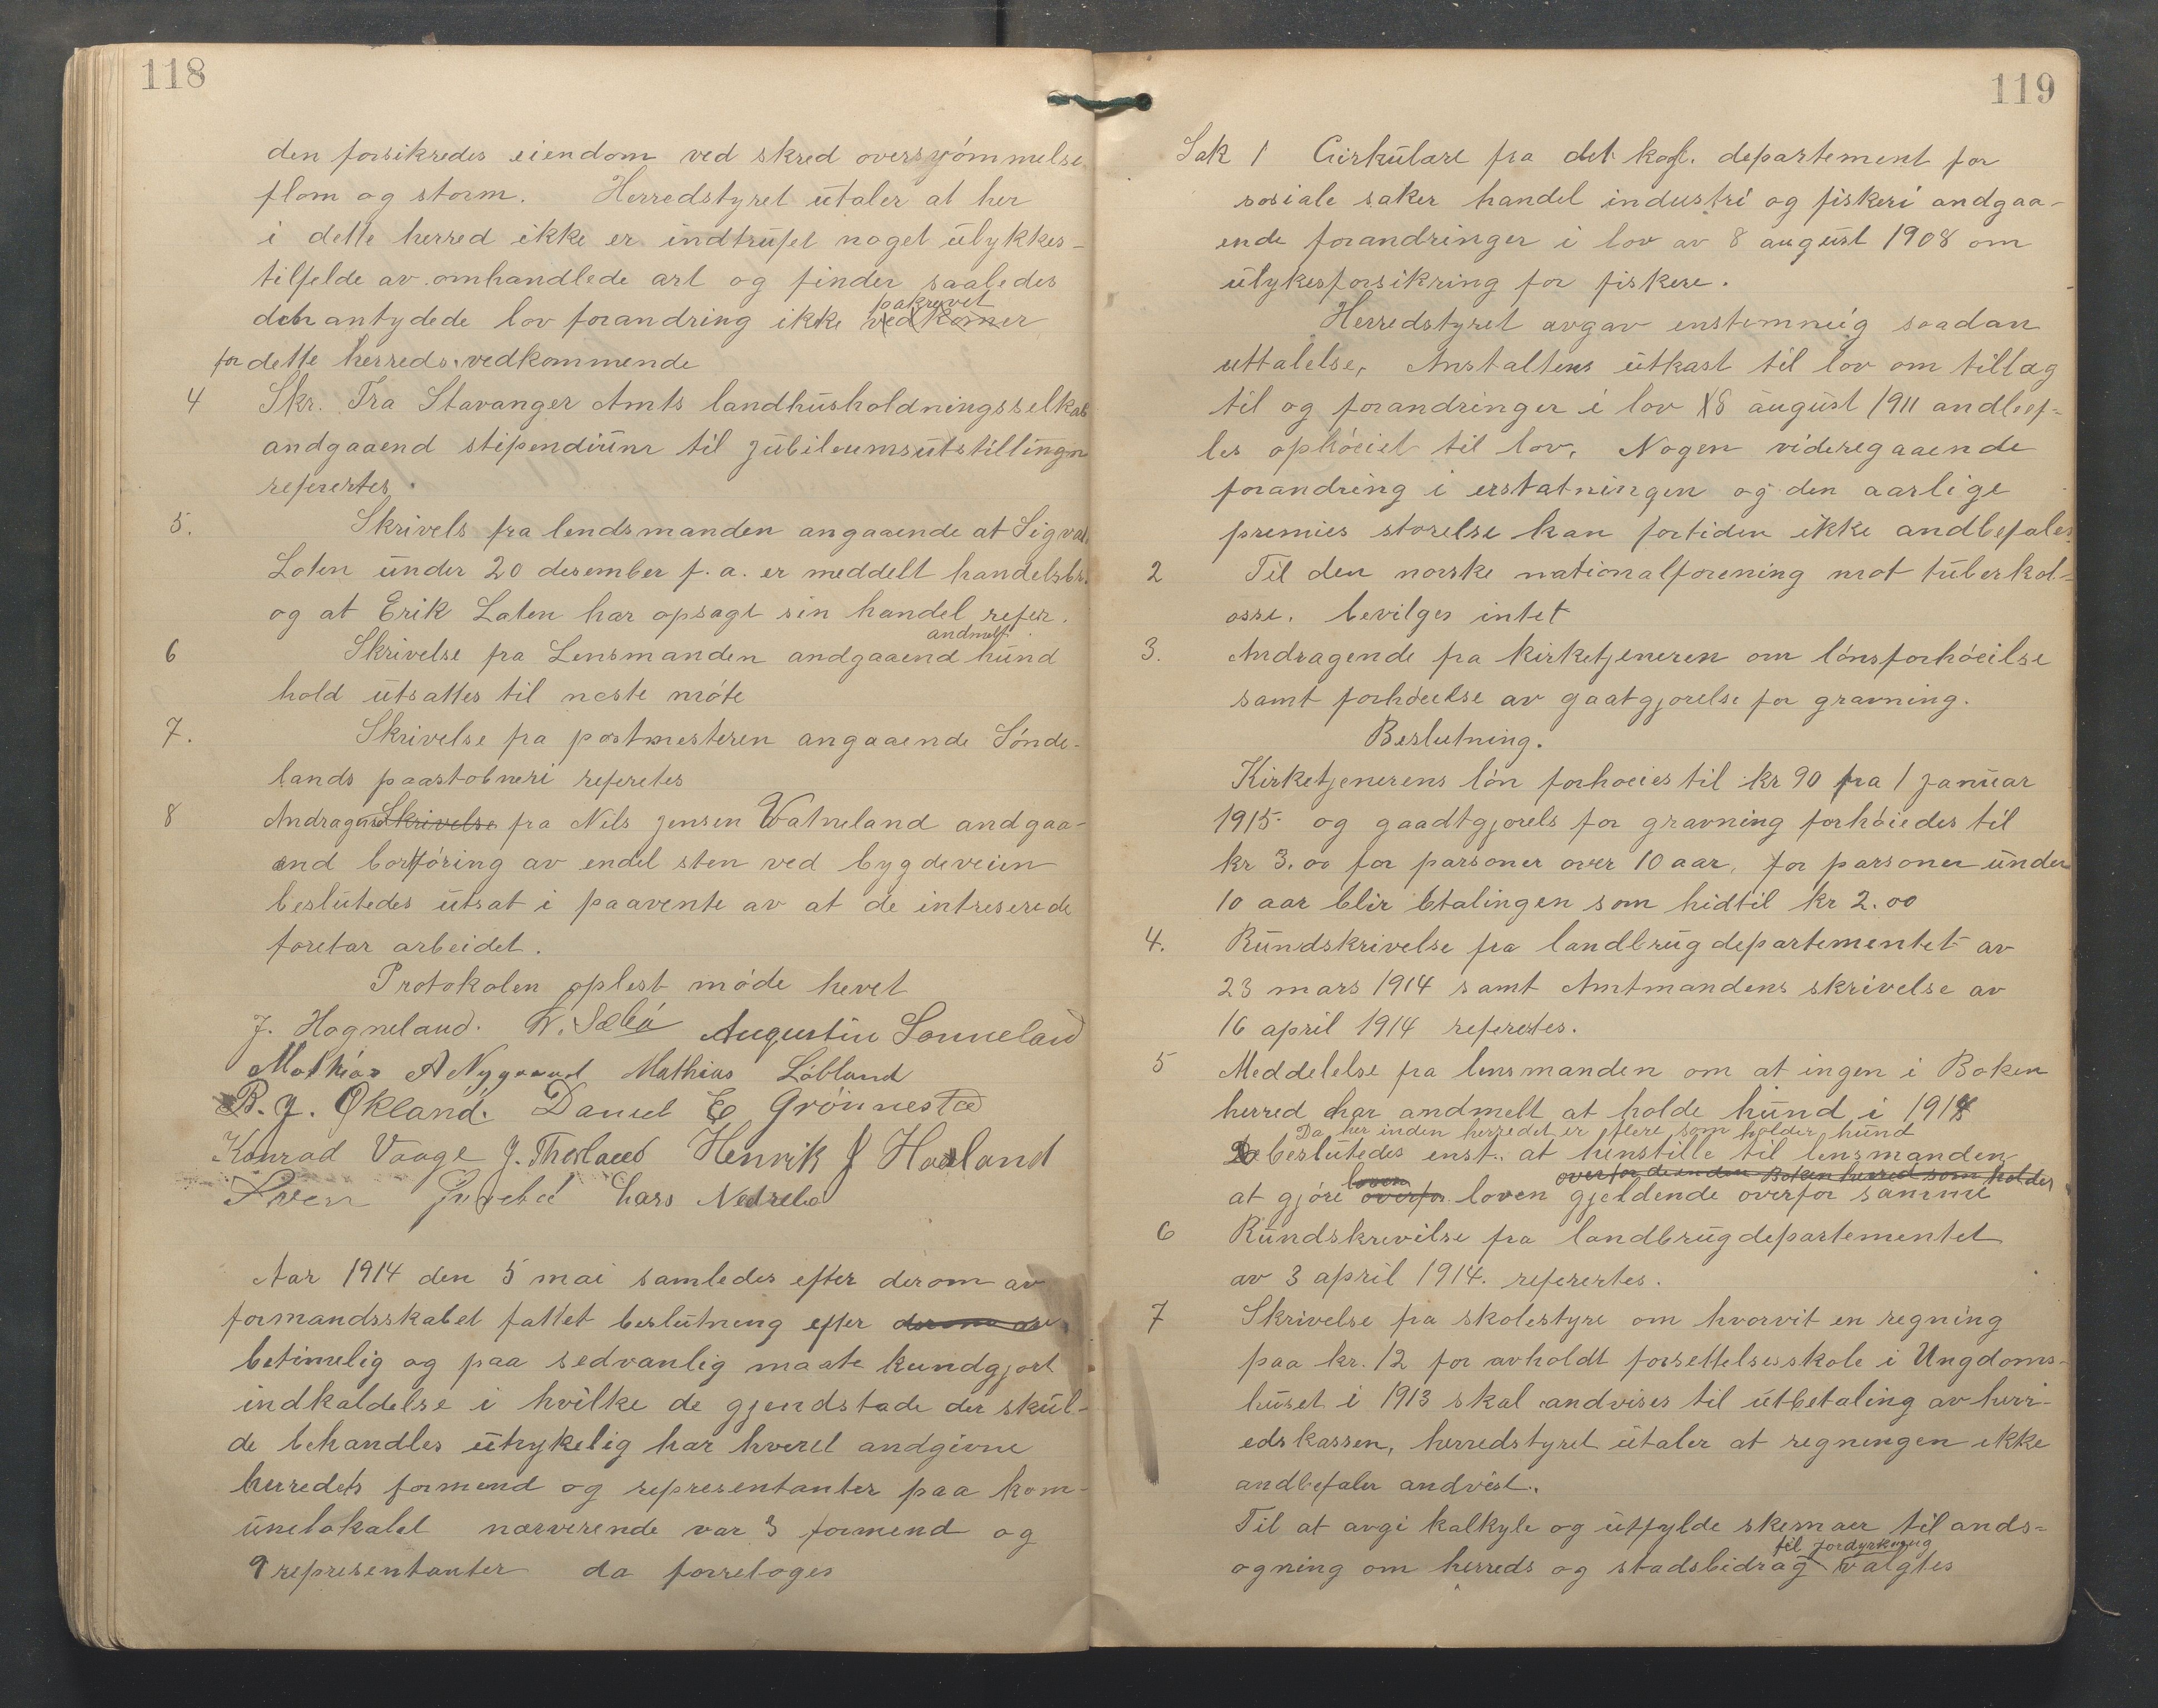 118
den forsikredes eiendom ved skred oversvømmelse
flom og storm. Herredstyret utaler at her
i dette herred ikke er indtrufet noget ulykkes-
tilfelde av omhandlede art og finder saaledes
pakrevet
den antydede lov forandring ikke vedkomer
for dette herreds vedkommende
4 Skr. Fra Stavanger Amts landhusholdningsselkab
andgaaend stipendium til jubileumsutstillingn
referertes.
5. Skrivels fra lendsmanden angaaende at Sigval
Laten under 20 desember f. a. er meddelt handelsbr.
og at Erik Laten har opsagt sin handel refer.
andmelt
6 Skrivelse fra Lensmanden andgaaend hund
hold utsattes til neste møte
7. Skrivelse fra postmesteren angaaende Sønde-
lands paastobneri referetes
8 Andragend Skrivelse fra Nels Jensen Vatneland andgaa-
end bortføring av endel sten ved bygdeveien
beslutedes utsat i paavente av at de intreserede
foretar arbeidet.
Protokolen oplest møde hevet
J. Hogneland. V. Sæbø Augustin Sonneland
Mathias A Nygaard Mathias Løbland
B. J. Økland. Daniel E Grønnestad
Konrad Vaage J. Thorland Henrik J Haaland
Sven Lars Nedrebø
Aar 1914 den 5 mai samledes efter derom av
formandsskabet fattet beslutning efter derom av
betimelig og paa sedvanlig maate kundgjort
indkaldelse i hvilke de gjendstade der skul-
de behandles utrykelig har hveret andgivne
herredets formend og representanter paa kom-
unelokalet nærverende var 3 formend og
9 representanter da forretoges
119
Sak 1 Cirkulære fra det kgl. departement for
sosiale saker handel industri og fiskeri andgaa-
ende forandringer i lov av 8 august 1908 om
ulykesforsikring for fiskere.
Herredstyret avgav enstemmig saadan
uttalelse, Anstaltens utkast til lov om tillæg
til og forandringer i lov 8 august 1911 andbef-
les ophøeiet til lov. Nogen videregaaende
forandring i erstatningen og den aarlige
premies storelse kan fortiden ikke andbefales.
2 Til den norske nationalforening mot tuberkol-
osse. bevilges intet
3. Andragende fra kirketjeneren om lønsforhøeilse
samt forhøeelse av gaatgjorelse for gravning.
Beslutning.
Kirketjenerens løn forhoeies til kr 90 fra 1 januar
1915. og gaadtgjorels for gravning forhøiedes til
kr 3.00 for parsoner over 10 aar, for parsoner under
10 aar blir btalingen som hidtil kr 2.00
4. Rundskrivelse fra landbrugdepartementet av
23 mars 1914 samt Amtmandens skrivelse av
16 april 1914 referertes.
5 Meddelelse fra lensmanden om at ingen i Boken
herred har andmelt at holde hund i 1914
Da her inden herredet er flere som holder hund
beslutedes enst. at henstille til lensmanden
loven overfor de inden Boken herred som holder
at gjøre overfor loven gjeldende overfor samme
6 Rundskrevilse fra landbrugdepartementet
av 3 april 1914. referertes.
7 Skrivelse fra skolestyre om hvorvit en regning
paa kr. 12 for avholdt forsettelsesskole i Ungdoms-
huset i 1913 skal andvises til utbetaling av herr-
edskassen, herredstyret utaler at regningen ikke
andbefaler andvist.
Til at avgi kalkyle og utfylde skemaer til ands-
til jordyrkning
ogning om herreds og stadsbidrag valgtes